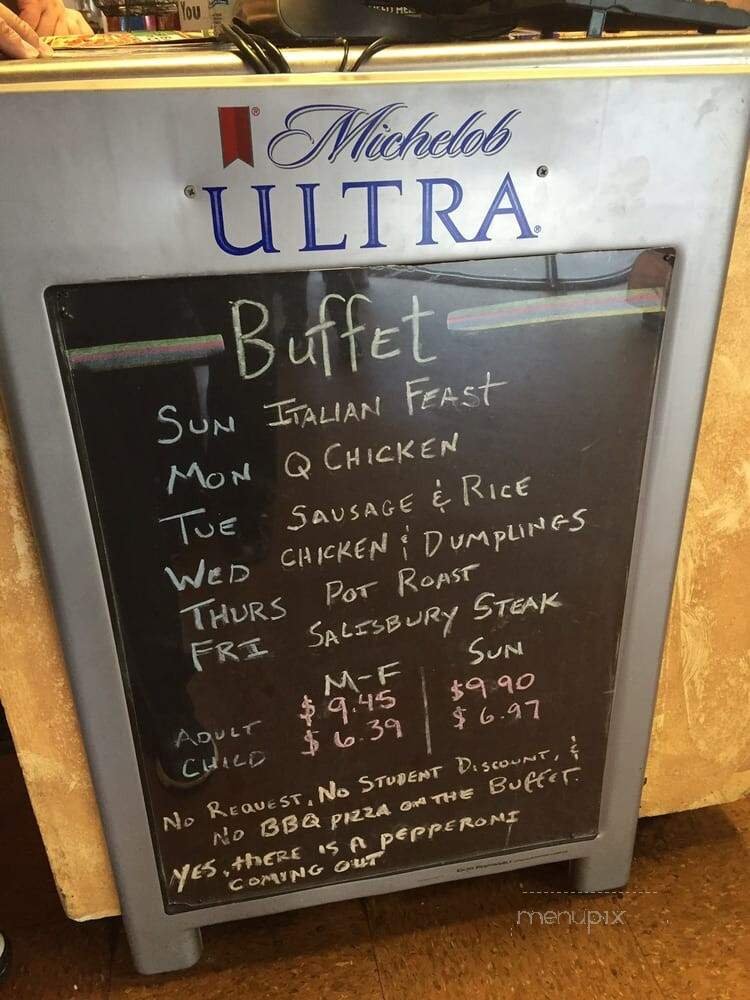 You
Michelob
ULTRA
BuffEt
SUN ITALIAN FEAST
MON Q CHICKEN
TUE SAUSAGE & RICE
WED CHICKEN & DUMPLINGS
THURS POT ROAST
FRI SALISBURY STEAK
M-F SUN
ADULT $9.45 $9.90
CHILD $6.39 $6.97
NO REQUEST, NO STUDENT DISCOUNT, &
NO BBQ PIZZA ON THE BUFFET.
YES, tHERE IS A PEPPERONI
COMING OUT
menupix